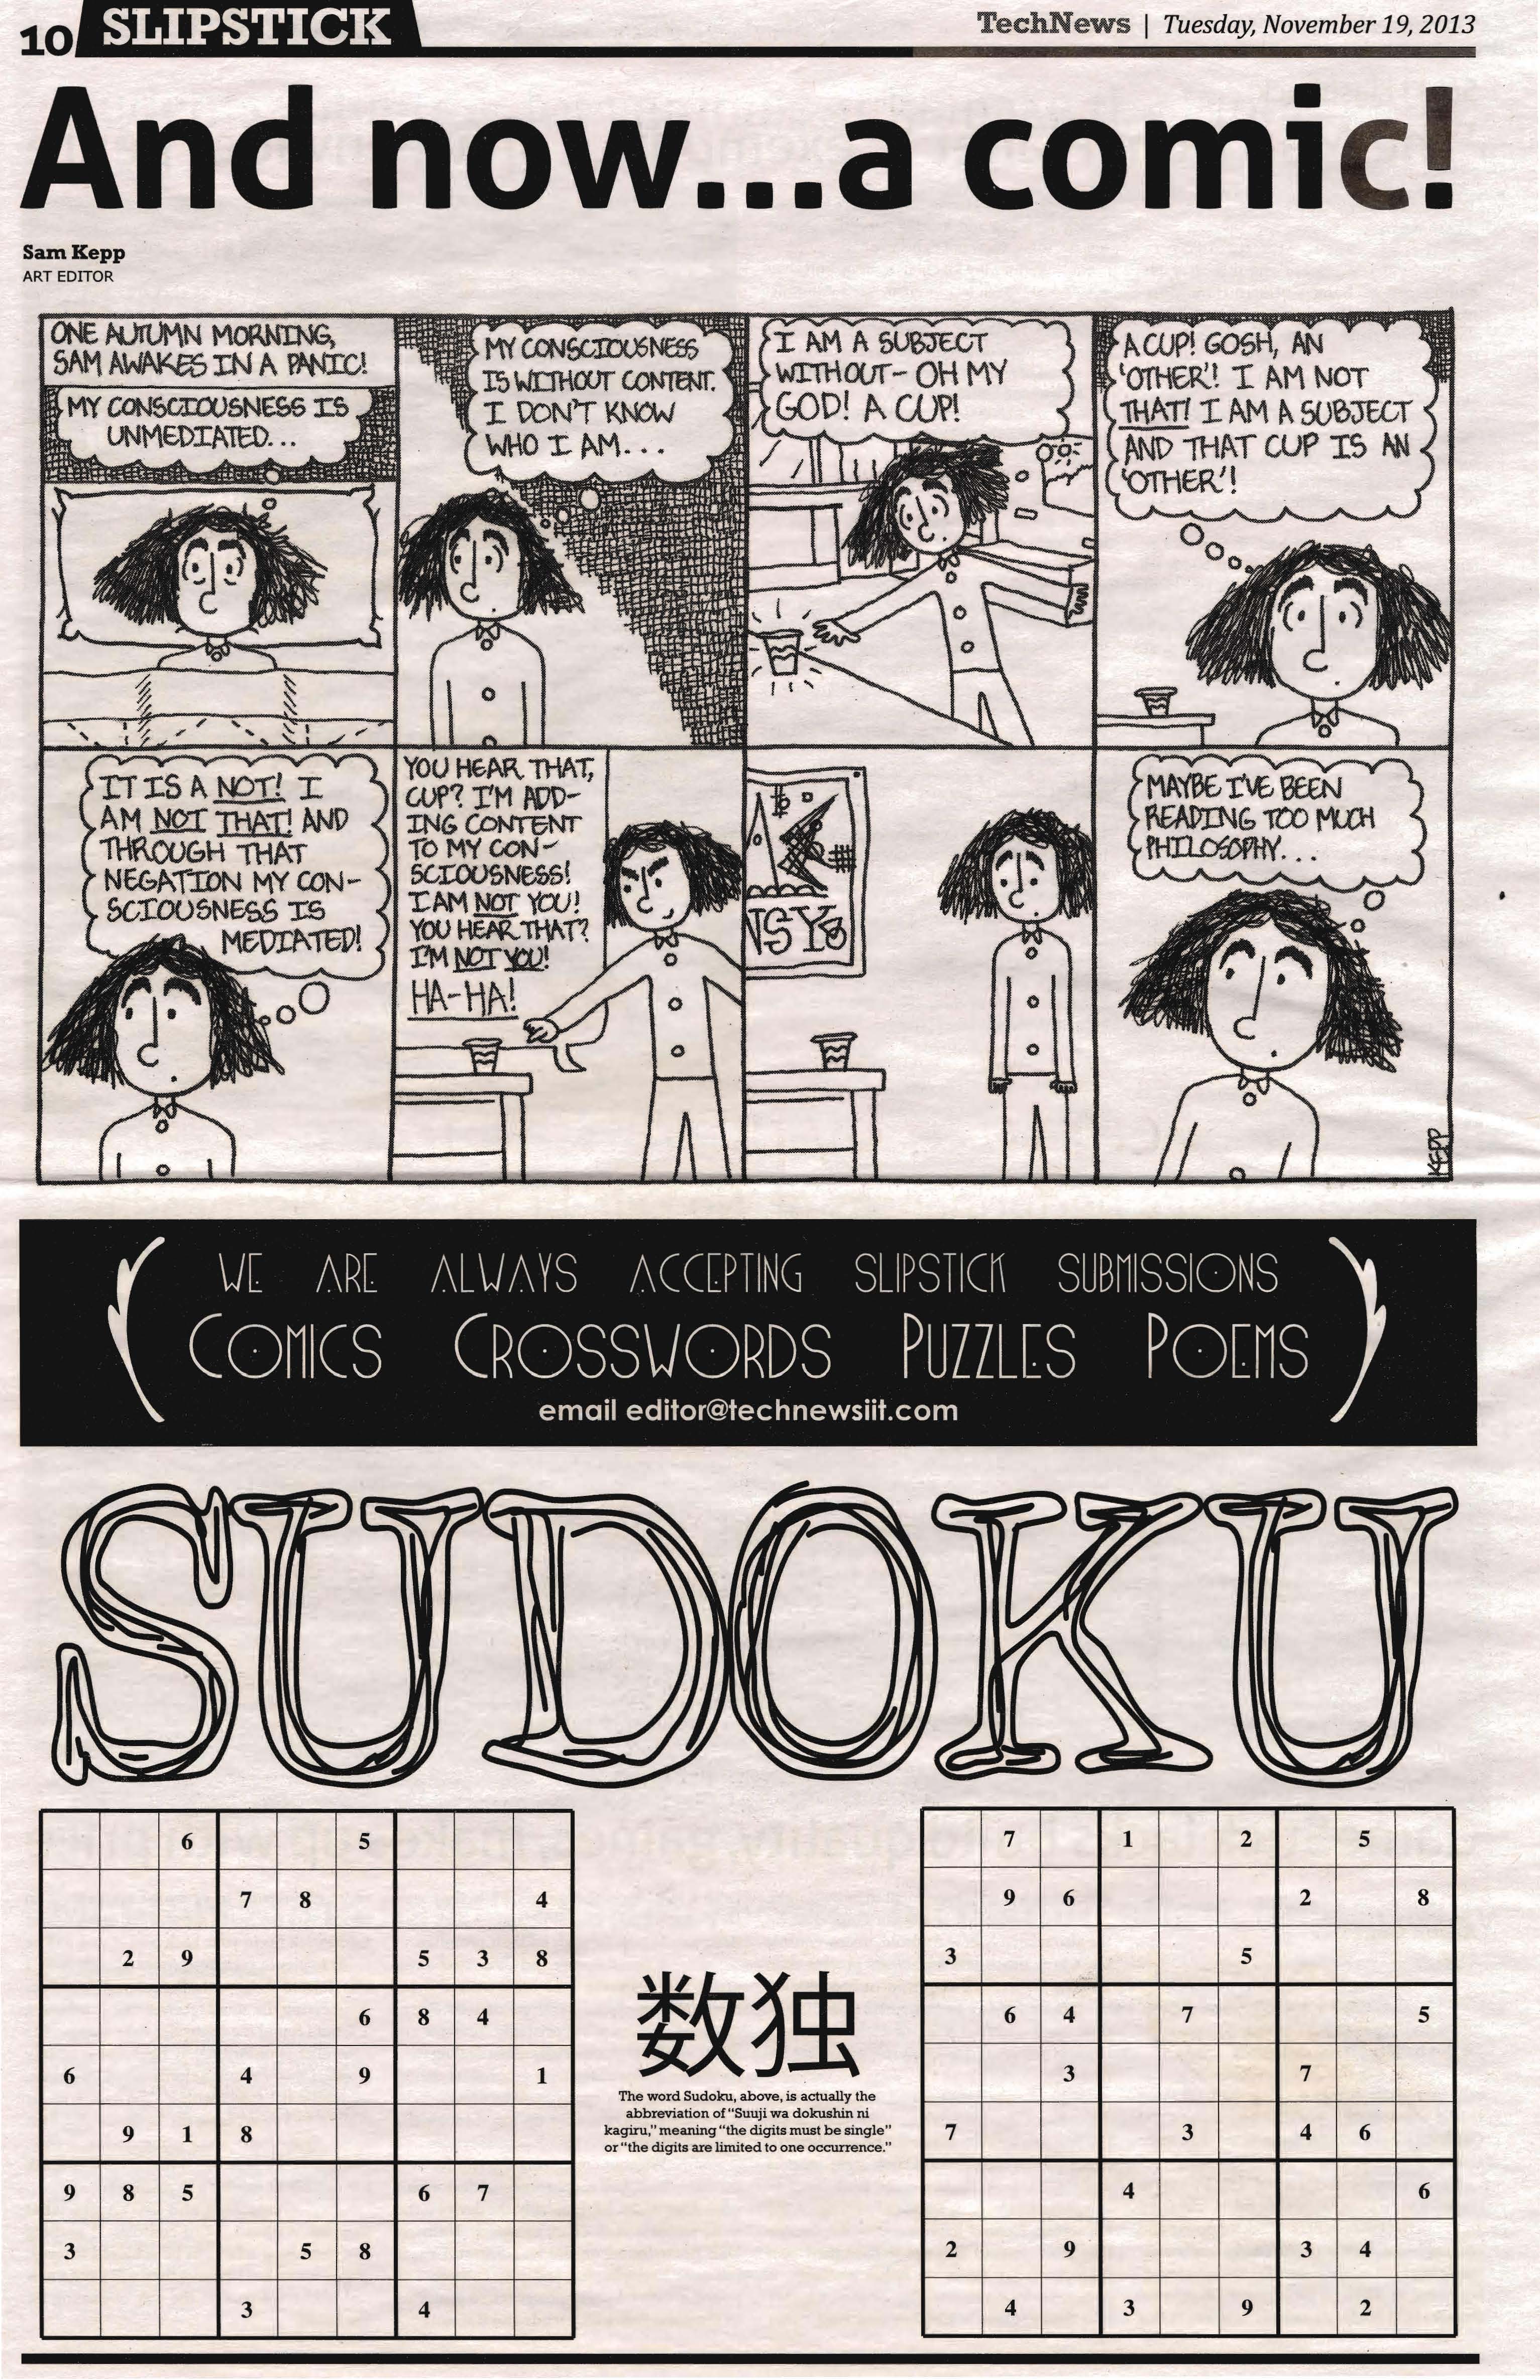 10 SLIPSTICK
TechNews | Tuesday, November 19, 2013
And now...a comic!
Sam Kepp
ART EDITOR
ONE AUTUMN MORNING,
SAM AWAKES IN A PANIC!
MY CONSCIOUSNESS IS
UNMEDIATED...
MY CONSCIOUSNESS
IS WITHOUT CONTENT.
I DON'T KNOW
WHO I AM...
I AM A SUBJECT
WITHOUT- OH MY
GOD! A CUP!
A CUP! GOSH, AN
'OTHER'! I AM NOT
THAT! I AM A SUBJECT
AND THAT CUP IS AN
'OTHER'!
IT IS A NOT! I
AM NOT THAT! AND
THROUGH THAT
NEGATION MY CON-
SCIOUSNESS IS
MEDIATED!
YOU HEAR THAT,
CUP? I'M ADD-
ING CONTENT
TO MY CON-
SCIOUSNESS!
I AM NOT YOU!
YOU HEAR THAT?
I'M NOT YOU!
HA-HA!
MAYBE I'VE BEEN
READING TOO MUCH
PHILOSOPHY...
KEPP
WE ARE ALWAYS ACCEPTING SLIPSTICK SUBMISSIONS
COMICS CROSSWORDS PUZZLES POEMS
email editor@technewsiit.com
SUDOKU
6 5
7 8 4
2 9 5 3 8
6 8 4
6 4 9 1
9 1 8
9 8 5 6 7
3 5 8
3 4
数独
The word Sudoku, above, is actually the
abbreviation of "Suuji wa dokushin ni
kagiru," meaning "the digits must be single"
or "the digits are limited to one occurrence."
7 1 2 5
9 6 2 8
3 5
6 4 7 5
3 7
7 3 4 6
4 6
2 9 3 4
4 3 9 2